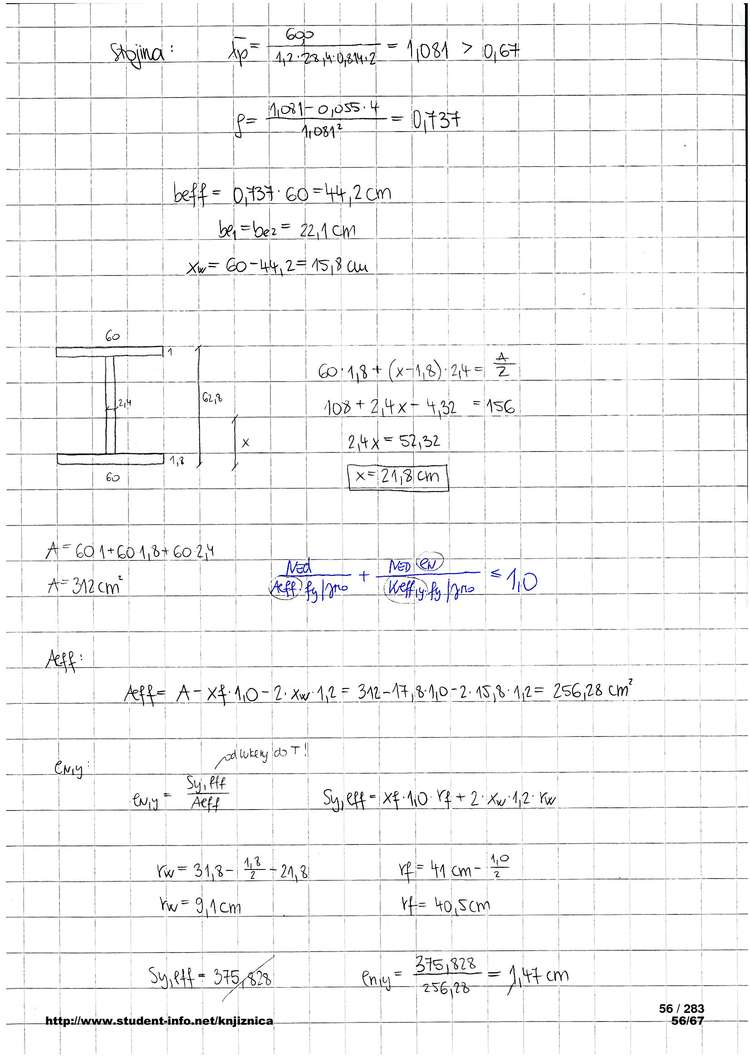 Stojina: λ̄p = 60,0 / (1,2·28,4·0,814·2) = 1,081 > 0,67
ρ = (1,081 − 0,055·4) / 1,081² = 0,737
beff = 0,737·60 = 44,2 cm
be1 = be2 = 22,1 cm
xw = 60 − 44,2 = 15,8 cm
60
1
2,4
62,8
x
1,8
60
60·1,8 + (x−1,8)·2,4 = A/2
108 + 2,4x − 4,32 = 156
2,4x = 52,32
x = 21,8 cm
A = 60 1 + 60 1,8 + 60 2,4
A = 312 cm²
NEd / (Aeff·fy/γM0) + NED eN / (Weff,y·fy/γM0) ≤ 1,0
Aeff:
Aeff = A − xf·1,0 − 2·xw·1,2 = 312 − 17,8·1,0 − 2·15,8·1,2 = 256,28 cm²
eN,y:
do T!
eN,y = Sy,eff / Aeff
Sy,eff = xf·1,0·rf + 2·xw·1,2·rw
rw = 31,8 − 1,8/2 − 21,8
rf = 41 cm − 1,0/2
rw = 9,1 cm
rf = 40,5 cm
Sy,eff = 375,828
eN,y = 375,828 / 256,28 = 1,47 cm
56 / 283
http://www.student-info.net/knjiznica
56/67